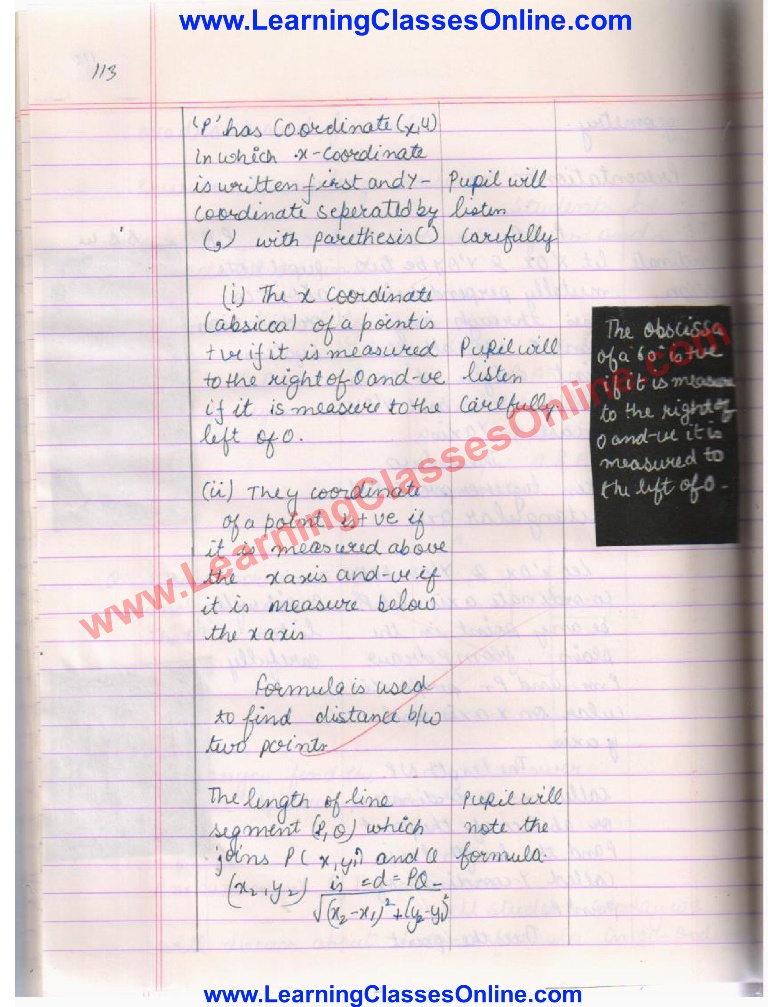 www.LearningClassesOnline.com
113
'P' has Coordinate (x, y)
in which x-Coordinate
is written first and Y-
coordinate seperated by
(,) with parethesis()
Pupil will
listen
carefully
(i) The x coordinate
(absicca) of a point is
+ve if it is measured
to the right of O and -ve
if it is measure to the
left of O.
Pupil will
listen
carefully.
The obscissa
of a "60" is +ve
if it is measure
to the right of
O and -ve it is
measured to
the left of O.
(ii) They coordinate
of a point is +ve if
it is measured above
the x axis and -ve if
it is measure below
the x axis
Formula is used
to find distance b/w
two points
The length of line
segment (P, Q) which
joins P(x1, y1) and Q
(x2, y2) is = d = PQ =
√(x2-x1)²+(y2-y1)²
Pupil will
note the
formula.
www.LearningClassesOnline.com
www.LearningClassesOnline.com